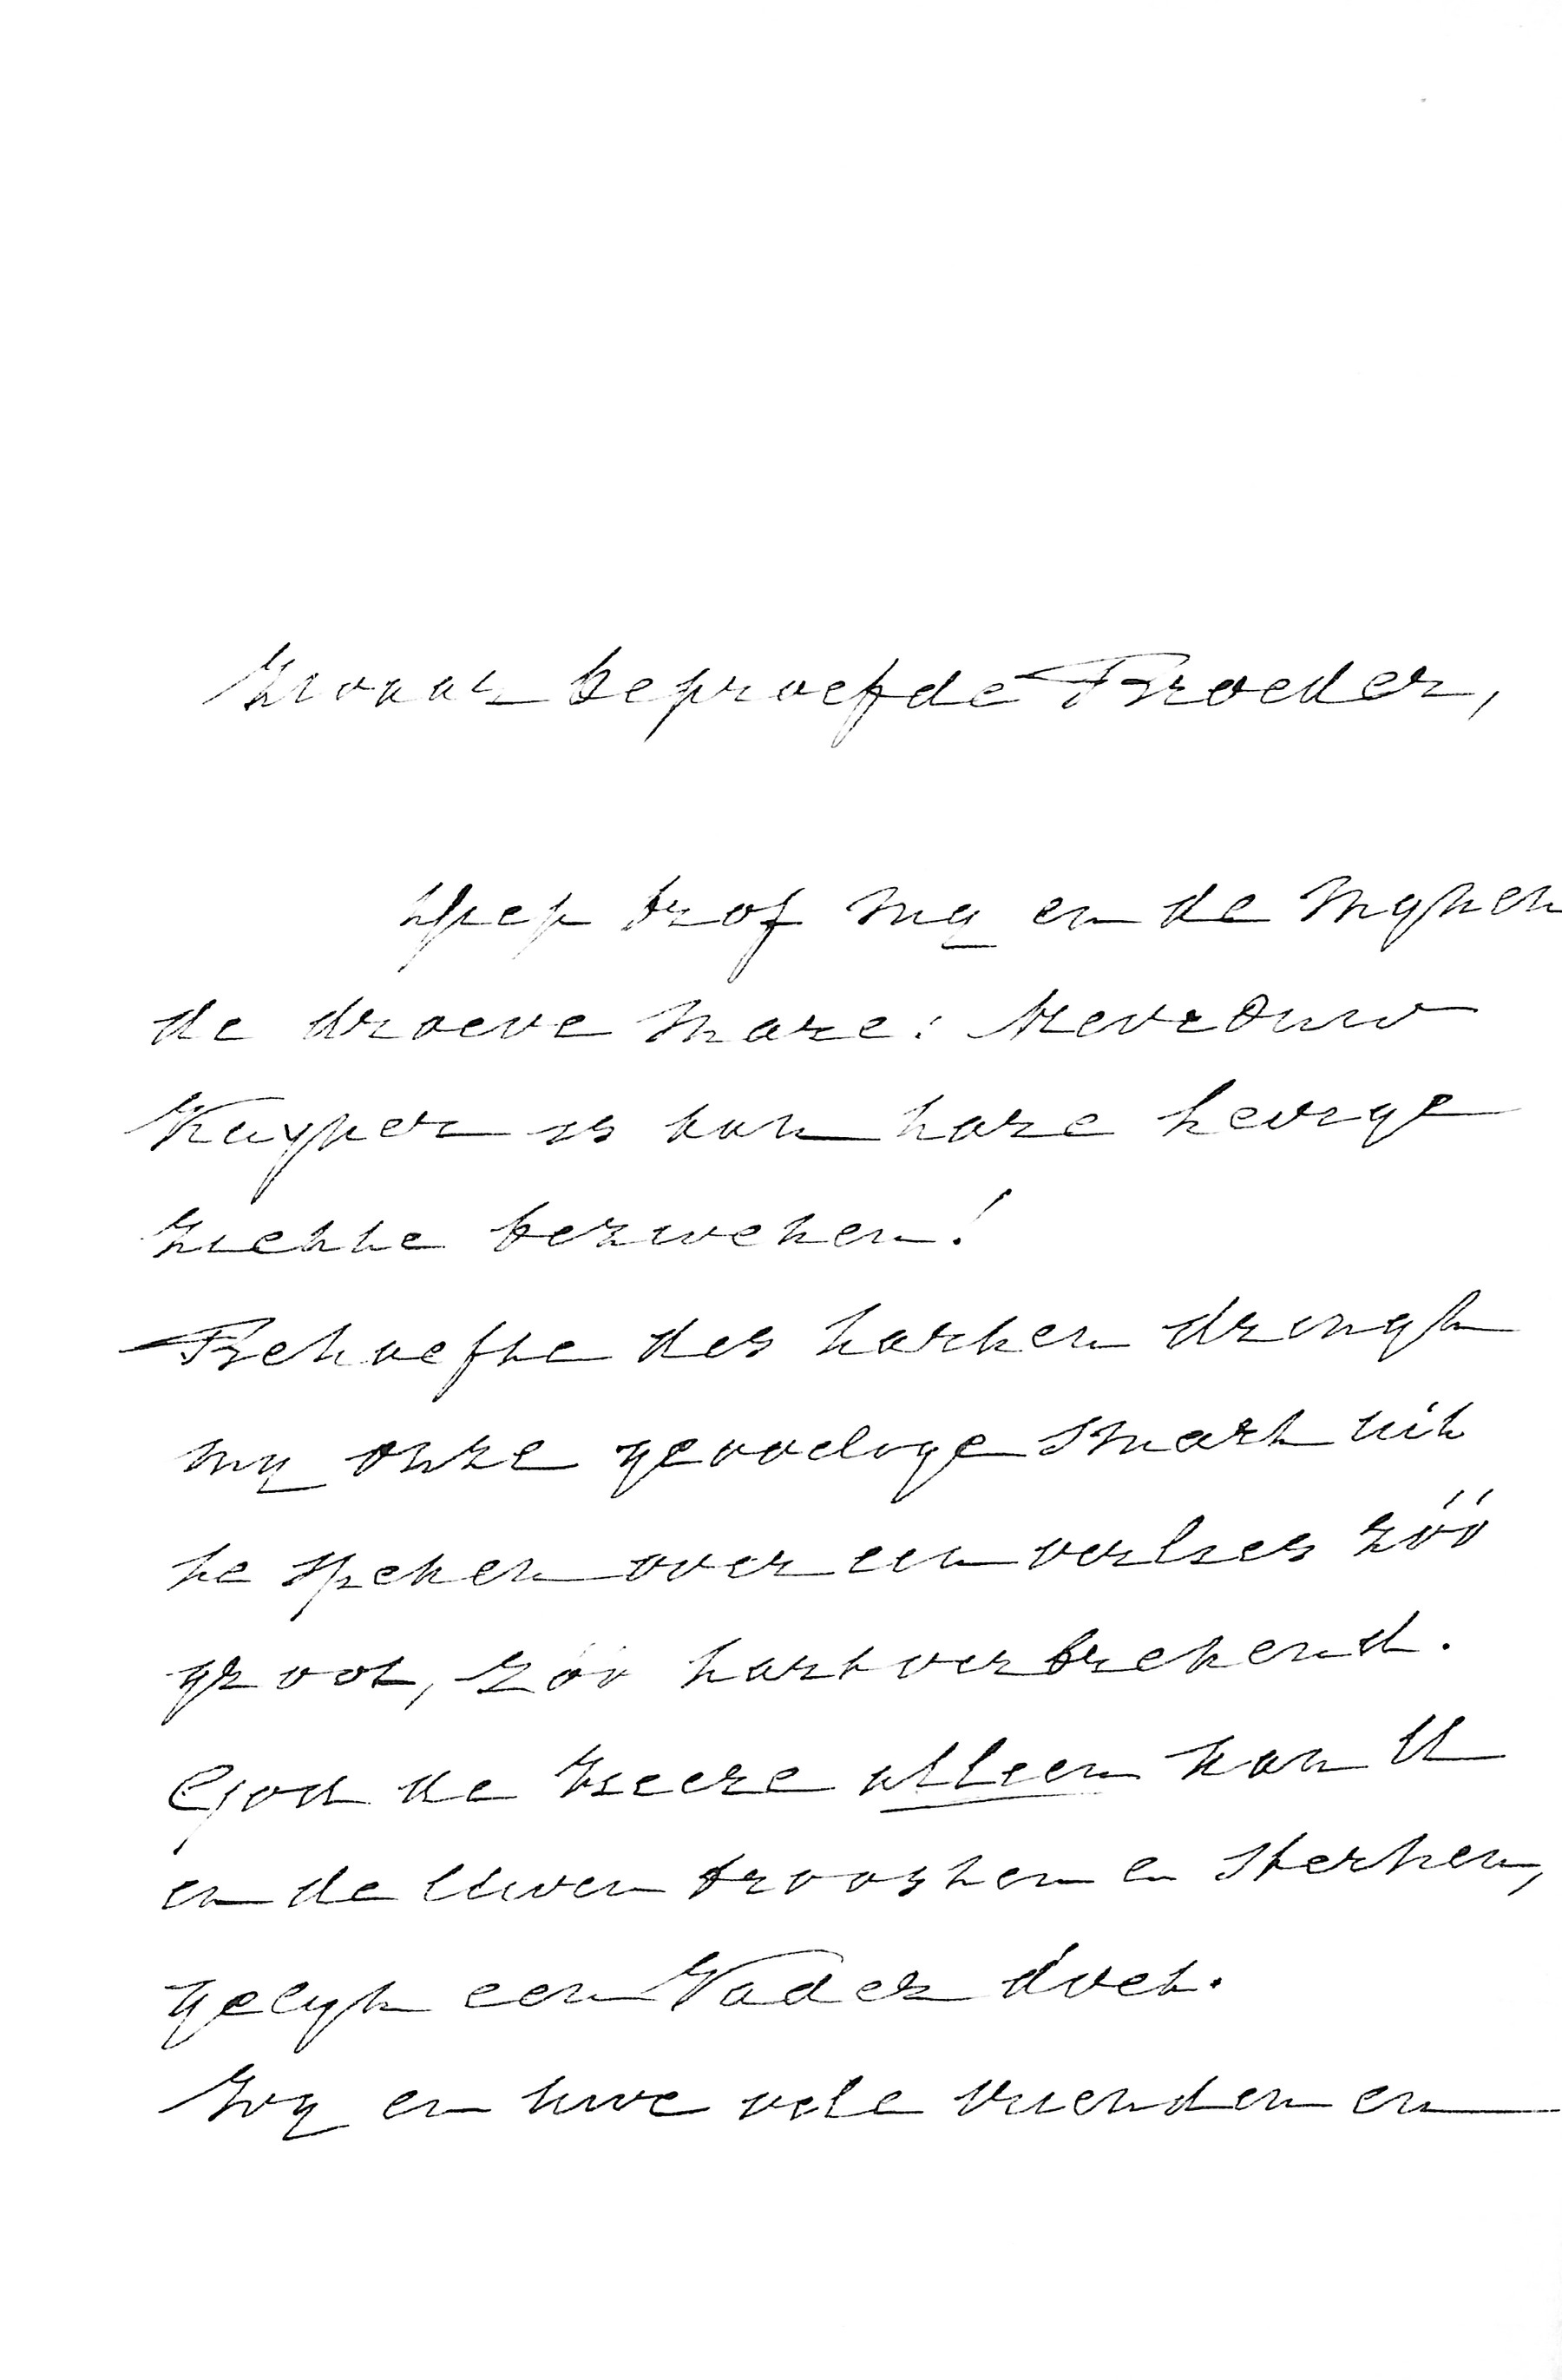 Zwaar beproefde Broeder,
Diep trof my en de mynen
de droeve mare: Mevrouw
Kuyper is aan hare hevige
ziekte bezweken!
Behoefte des harten dringt
my onze gevoelige smart uit
te speken over een verlies zóó
groot, zóó hartverbrekend.
God de Heere alleen kan U
en de Uwen troosten en sterken,
gelyk een Vader doet.
Wy en uwe vele vrienden en